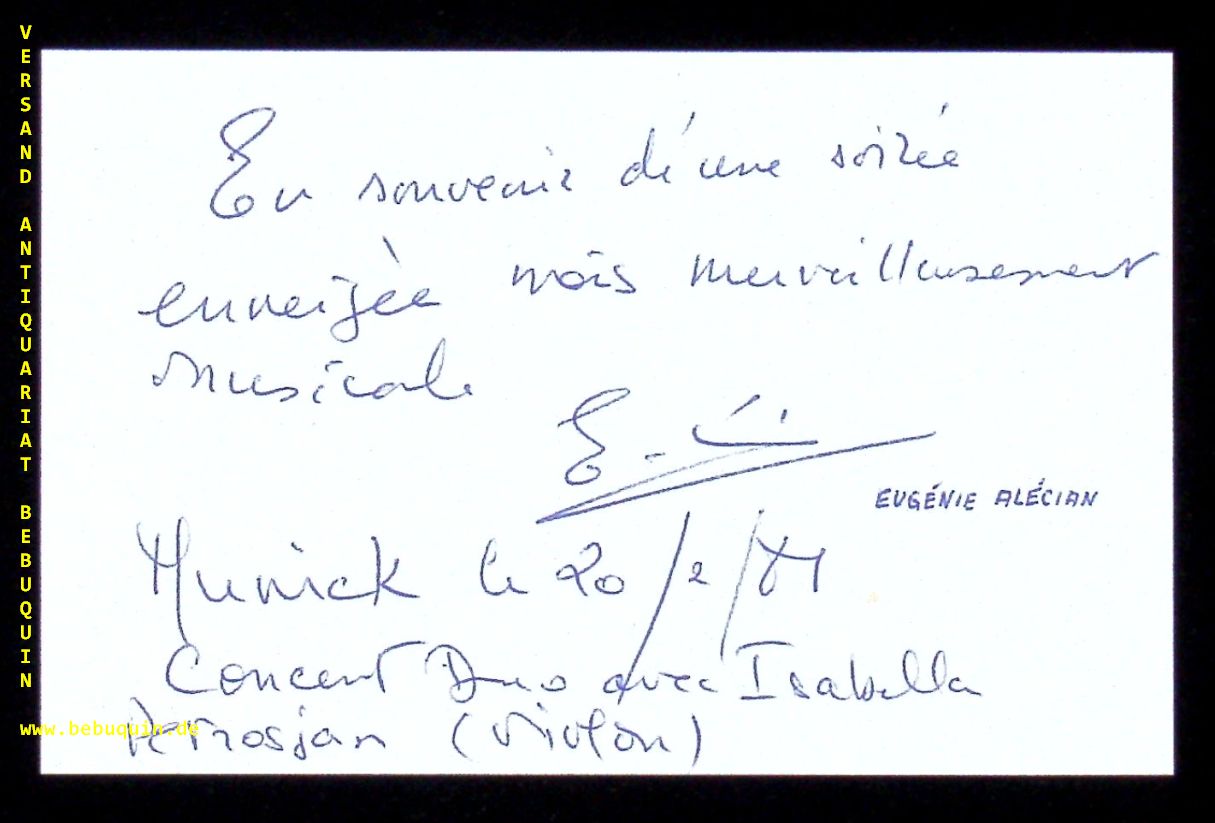 VERSAND ANTIQUARIAT BEBUQUIN
En souvenir d'une soirée
enneigée mais merveilleusement
musicale
EUGÉNIE ALÉCIAN
Munick le 20/2/
Concert Duo avec Isabella
Petrosjan (violon)
www.bebuquin.de